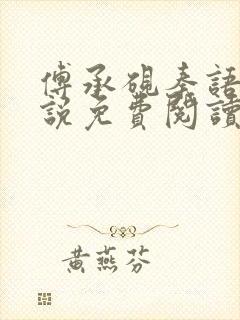 傅承硯秦語
說免費閱讀
黃燕芬